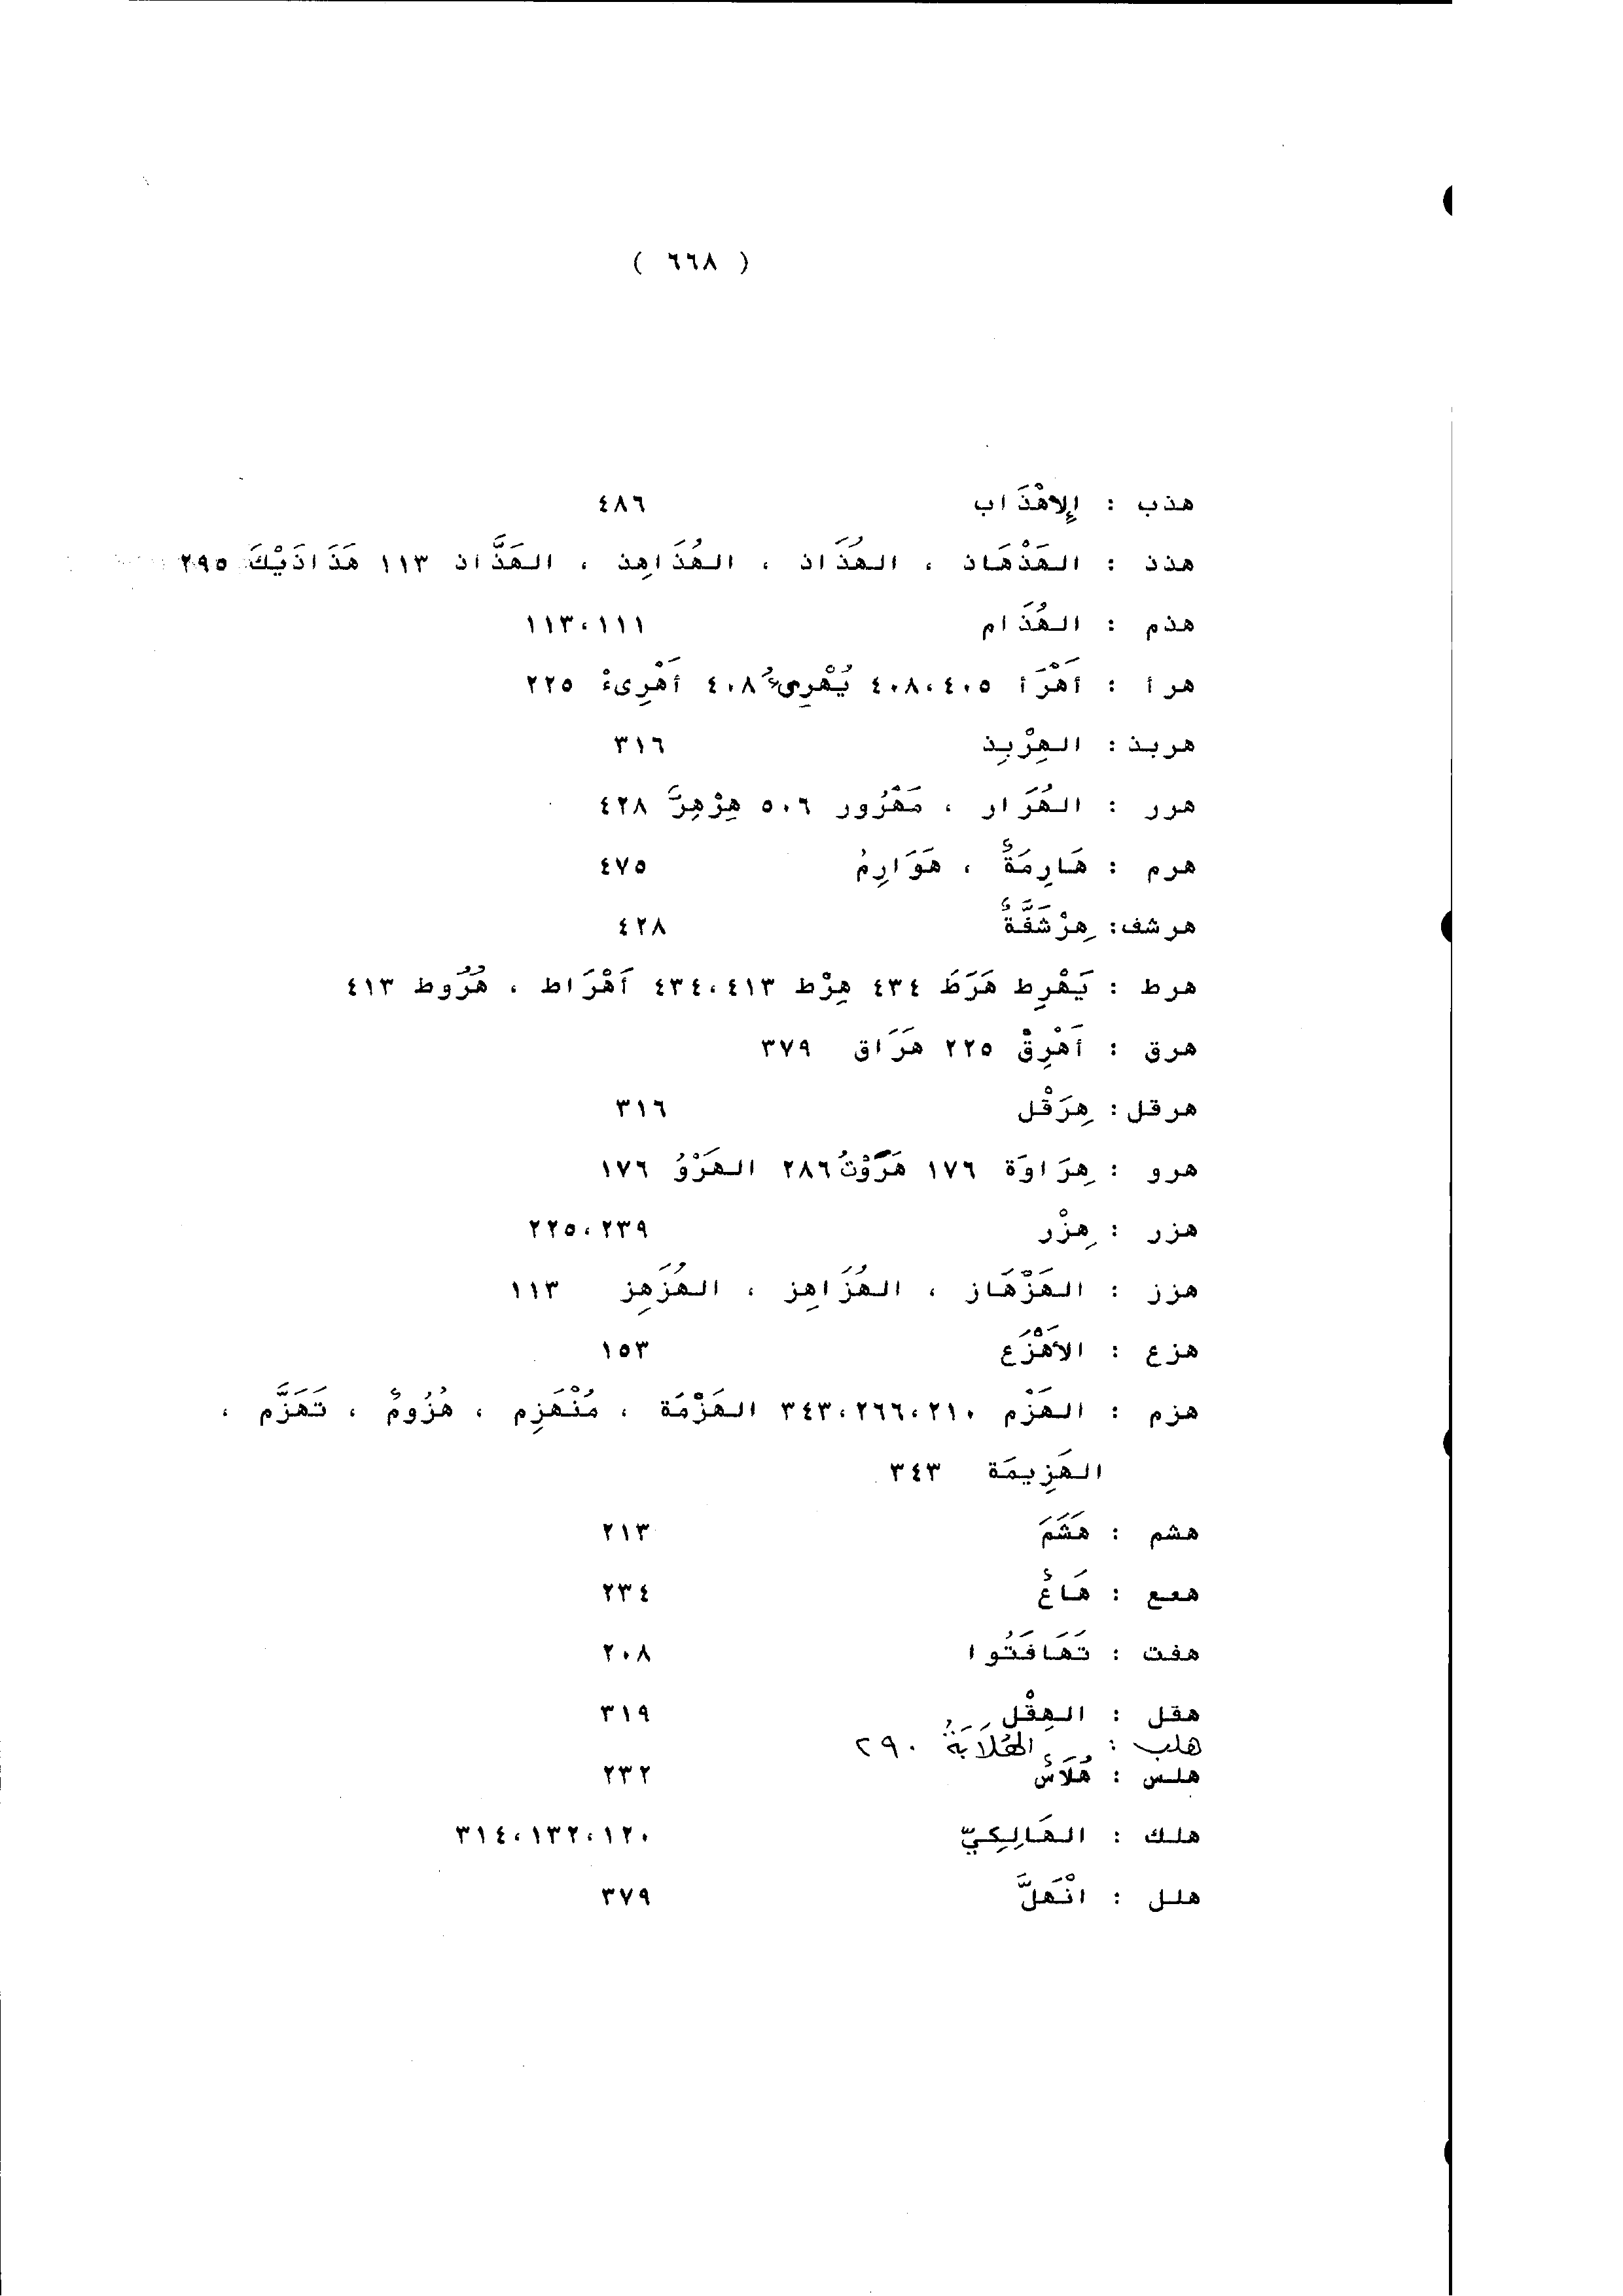 ( ٦٦٨ )
هذب : الإِهْذَاب ٤٨٦
هذذ : الهَذْهَاذ ، الهُذَاذ ، الهُذَاهِذ ، الهَذَّاذ ١١٣ هَذَاذَيْكَ ٢٩٥
هذم : الهُذَام ١١١،١١٣
هرأ : أَهْرَأ ٤٠٥،٤٠٨ يُهْرِىءُ ٤٠٨ أَهْرِىءْ ٢٢٥
هربذ : الهِرْبِذ ٣١٦
هرر : الهُرَار ، مَهْرُور ٥٠٦ هِرْهِرَّ ٤٢٨
هرم : هَارِمَةٌ ، هَوَارِمُ ٤٧٥
هرشف : هِرْشَفَّةٌ ٤٢٨
هرط : يَهْرِط هَرَطَ ٤٣٤ هِرْط ٤١٣،٤٣٤ أَهْرَاط ، هُرُوط ٤١٣
هرق : أَهْرِقْ ٢٢٥ هَرَاق ٣٧٩
هرقل : هِرَقْل ٣١٦
هرو : هِرَاوَة ١٧٦ هَرَوْتُ ٢٨٦ الهَرْوُ ١٧٦
هزر : هِزْر ٢٣٩،٢٢٥
هزز : الهَزْهَاز ، الهُزَاهِز ، الهُزَهِز ١١٣
هزع : الأَهْزَع ١٥٣
هزم : الهَزْم ٢١٠،٢٦٦،٣٤٣ الهَزْمَة ، مُنْهَزِم ، هُزُومٌ ، تَهَزَّم ،
الهَزِيمَة ٣٤٣
هشم : هَشَمَ ٢١٣
هعع : هَاعٌ ٢٣٤
هفت : تَهَافَتُوا ٢٠٨
هقل : الهِقْل ٣١٩
هلب : الهُلَابَةُ ٢٩٠
هلس : هُلَاسٌ ٢٣٢
هلك : الهَالِكِيّ ١٢٠،١٣٢،٣١٤
هلل : انْهَلَّ ٣٧٩